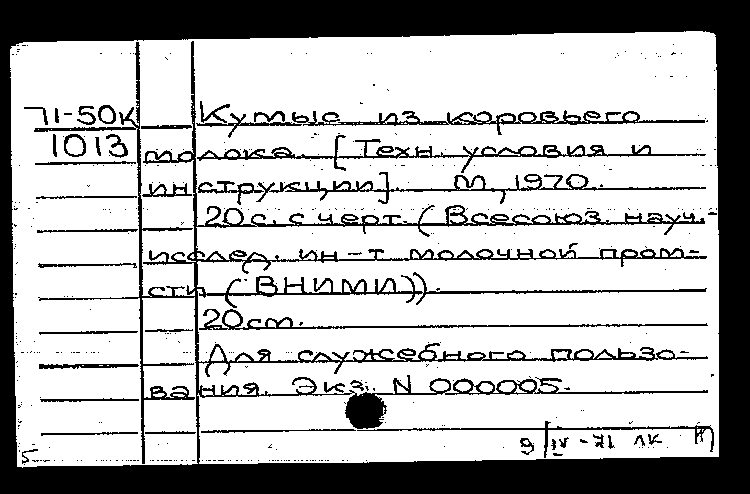 71-50к Кумыс из коровьего
1013 молока. [Техн. условия и
инструкции]. М., 1970.
20 с. с черт. (Всесоюз. науч.-
исслед. ин-т молочной пром-
сти (ВНИМИ)).
20 см.
Для служебного пользо-
вания. Экз. N 000005.
5